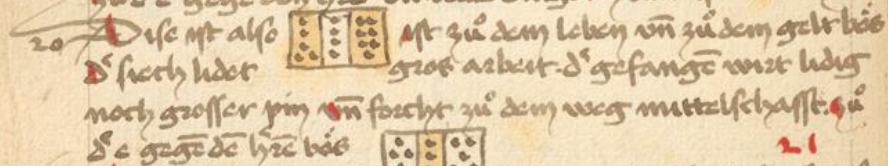 20 Dise ist also ist zuͦ dem leben vn̄ zuͦ dem gelt boͤs
dˢ siech lidet gros arbeit. dˢ gefangē wirt lidig
noch grosser pin vn̄ forcht zuͦ dem weg mittelschafft. zuͦ
dˢ e gegē dē hr̄e boͤs
21